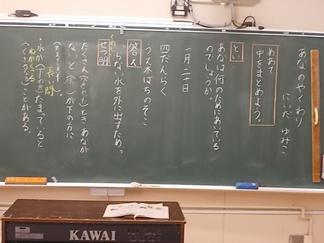 あなのやくわり
にいだ ゆみこ
めあて
中をまとめよう。
とい
あなは何のためにあいている
のでしょうか。
一月二十日
四だんらく
うえ木ばちのそこ
答え
いらない水を外に出すため。
せつ明
たくさん
あながないと
下の方に
長い間
水が
たまっていると、
くさってしまうことがある。
KAWAI